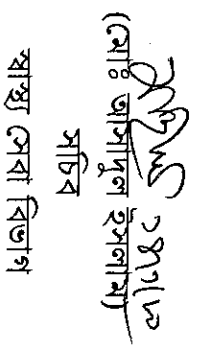 (মোঃ আসাদুল ইসলাম)
সচিব
স্বাস্থ্য সেবা বিভাগ